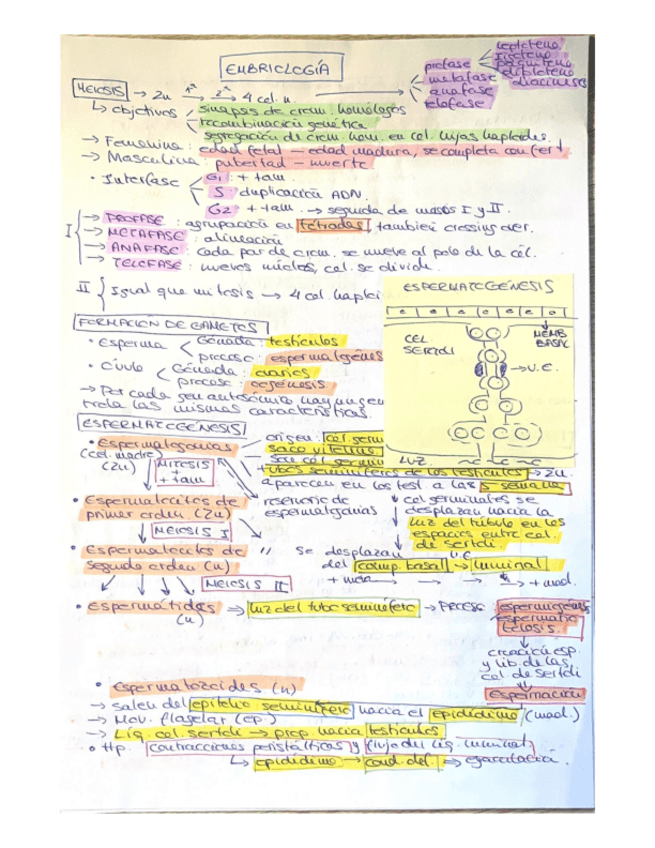 EMBRIOLOGÍA
profase
leptoteno
metafase
anafase
telofase
MEIOSIS → 2n → 4 cel. n.
↳ objetivos
sinapsis de crom. homólogos
recombinación genética
segregación de crom. hom. en cel. hijas haploides.
→ Femenina: edad fetal – edad madura, se completa con fert
→ Masculina: pubertad – muerte
• Interfase
G1 + tam.
S: duplicación ADN.
G2 + tam. → seguida de meiosis I y II.
I
→ PROFASE: agrupación en tétradas, también crossing over.
→ METAFASE: alineación
→ ANAFASE: Cada par de crom. se mueve al polo de la cél.
→ TELOFASE: nuevos núcleos, cel. se divide.
II { Igual que mitosis → 4 cel. haploi
ESPERMATOGÉNESIS
CEL SERTOLI
MEMB BASAL
→ U.E.
LUZ
FORMACION DE GAMETOS
• Esperma
Gónada: testículos
proceso: espermatogénes
• Óvulo
Gónada: ovarios
proceso: oogénesis
→ Por cada gen autosómico hay un gen
las mismas características.
ESPERMATOGÉNESIS
• Espermatogonias
(cel. madre)
(2n)
origen: cel. germ
saco vitelino
son cel germin
+ tubos seminíferos de los testículos → 2n.
aparecen en los test a las 5 semana
MITOSIS
+
+ tam
reservorio de
espermatogonias
cel germinales se
desplazan hacia la
luz del túbulo en los
espacios entre cel.
de Sertoli.
• Espermatocitos de
primer orden (2n)
MEIOSIS I
• Espermatocitos de
segundo orden (n)
"
Se desplazan
del comp. basal → luminal
U.E.
+ mad.
MEIOSIS II
• Espermátidas
(n)
→ luz del tubo seminífero → PROCESO: espermiogénes
espermato
telosis.
creación esp.
y lib. de las
cel. de Sertoli
Espermiación
• Espermatozoides (n)
→ Salen del epitelio seminífero hacia el epidídimo (mad.)
→ Mov. flagelar (ep.)
→ Líq. cel. sertoli → prop. hacia testículos
• Hp. contracciones peristálticas y flujo del líq. luminal
↳ epidídimo → cond. def. → eyaculación.